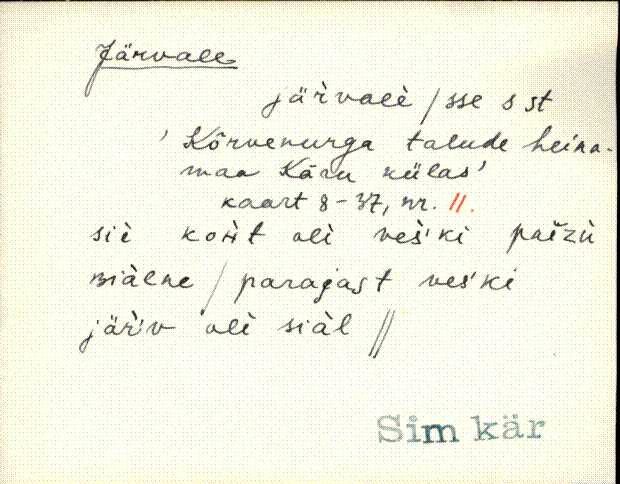 Järvale
järvalè / sse s st
' Kõrvenurga talude heina-
maa Käru külas'
kaart 8-37, nr. 11.
siè koht olè ves'ki paizù
miàlne / parajast ves'ki
järv olè siàl //
Sim kär